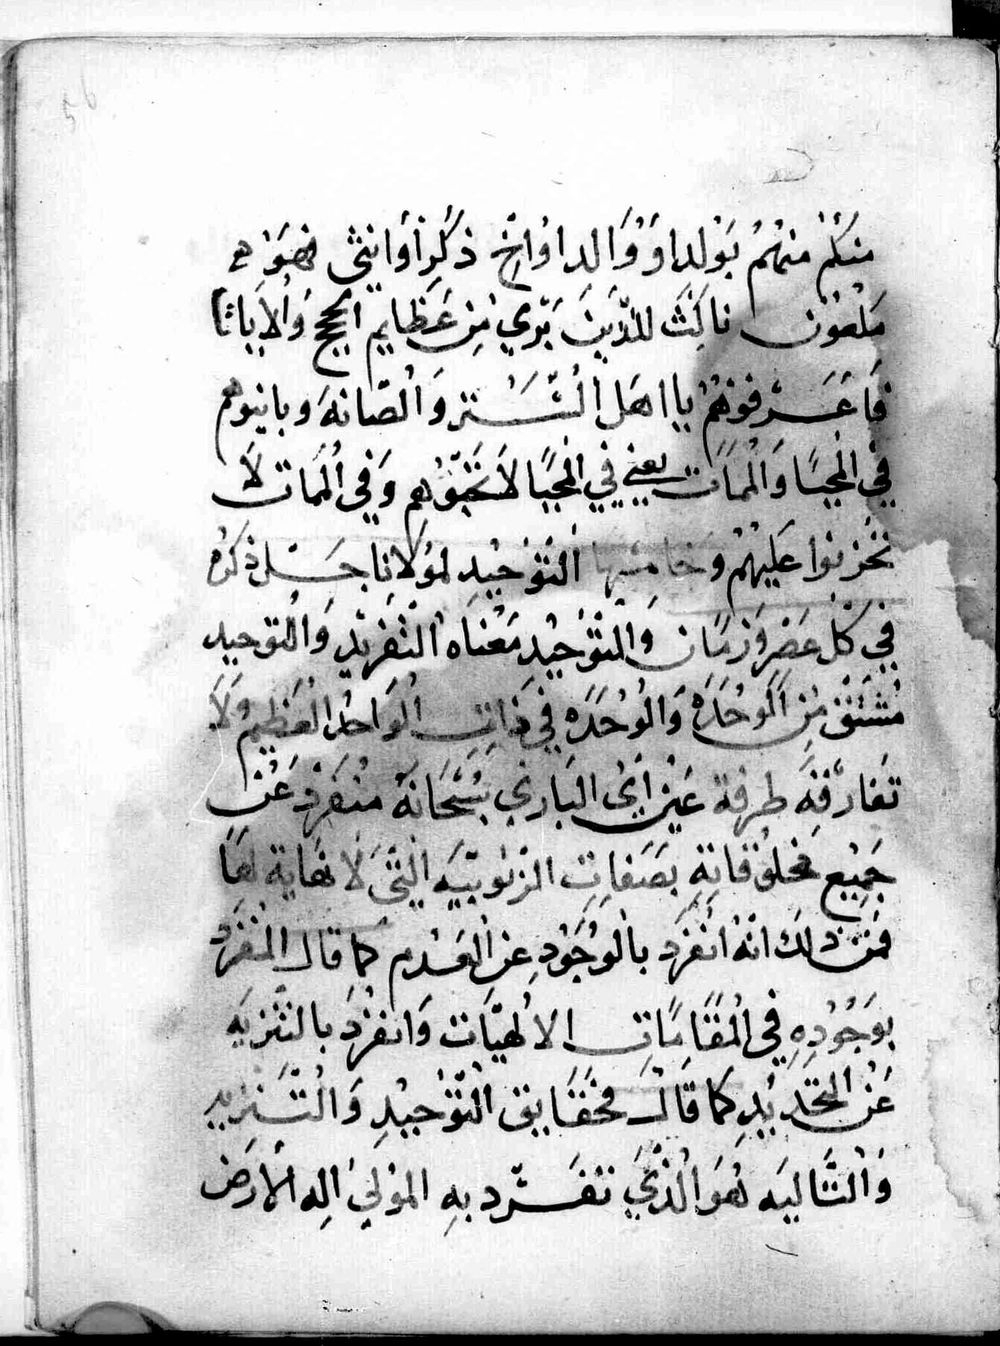 منكم منهم بولدا او والدا واخ ذكرا وانثى فهو هو
ملعون ناكث للدين بري من عظايم الحجج والاياتا
فاعرفوهم يا اهل الستر والصانه وبانيوهم
في المحيا والممات يعني في المحيا لا تحبوهم وفي الممات لا
تحزنوا عليهم وخامسها التوحيد لمولانا جل ذكره
في كل عصر وزمان والتوحيد معناه التفريد والتوحيد
مشتق من الوحده والوحده في ذات الواحد العظيم ولا
تفارقه طرفة عين اي الباري سبحانه منفرد عن
جميع مخلوقاته بصفات الربوبيه التي لا نهاية لها
فمن ذلك انه انفرد بالوجود عن العدم كما قال المنفرد
بوجوده في المقامات الالهيات وانفرد بالتنزيه
عن التحديد كما قال فحقايق التوحيد والتنزيه
والتاليه هو الذي تفرد به المولى اله الارض